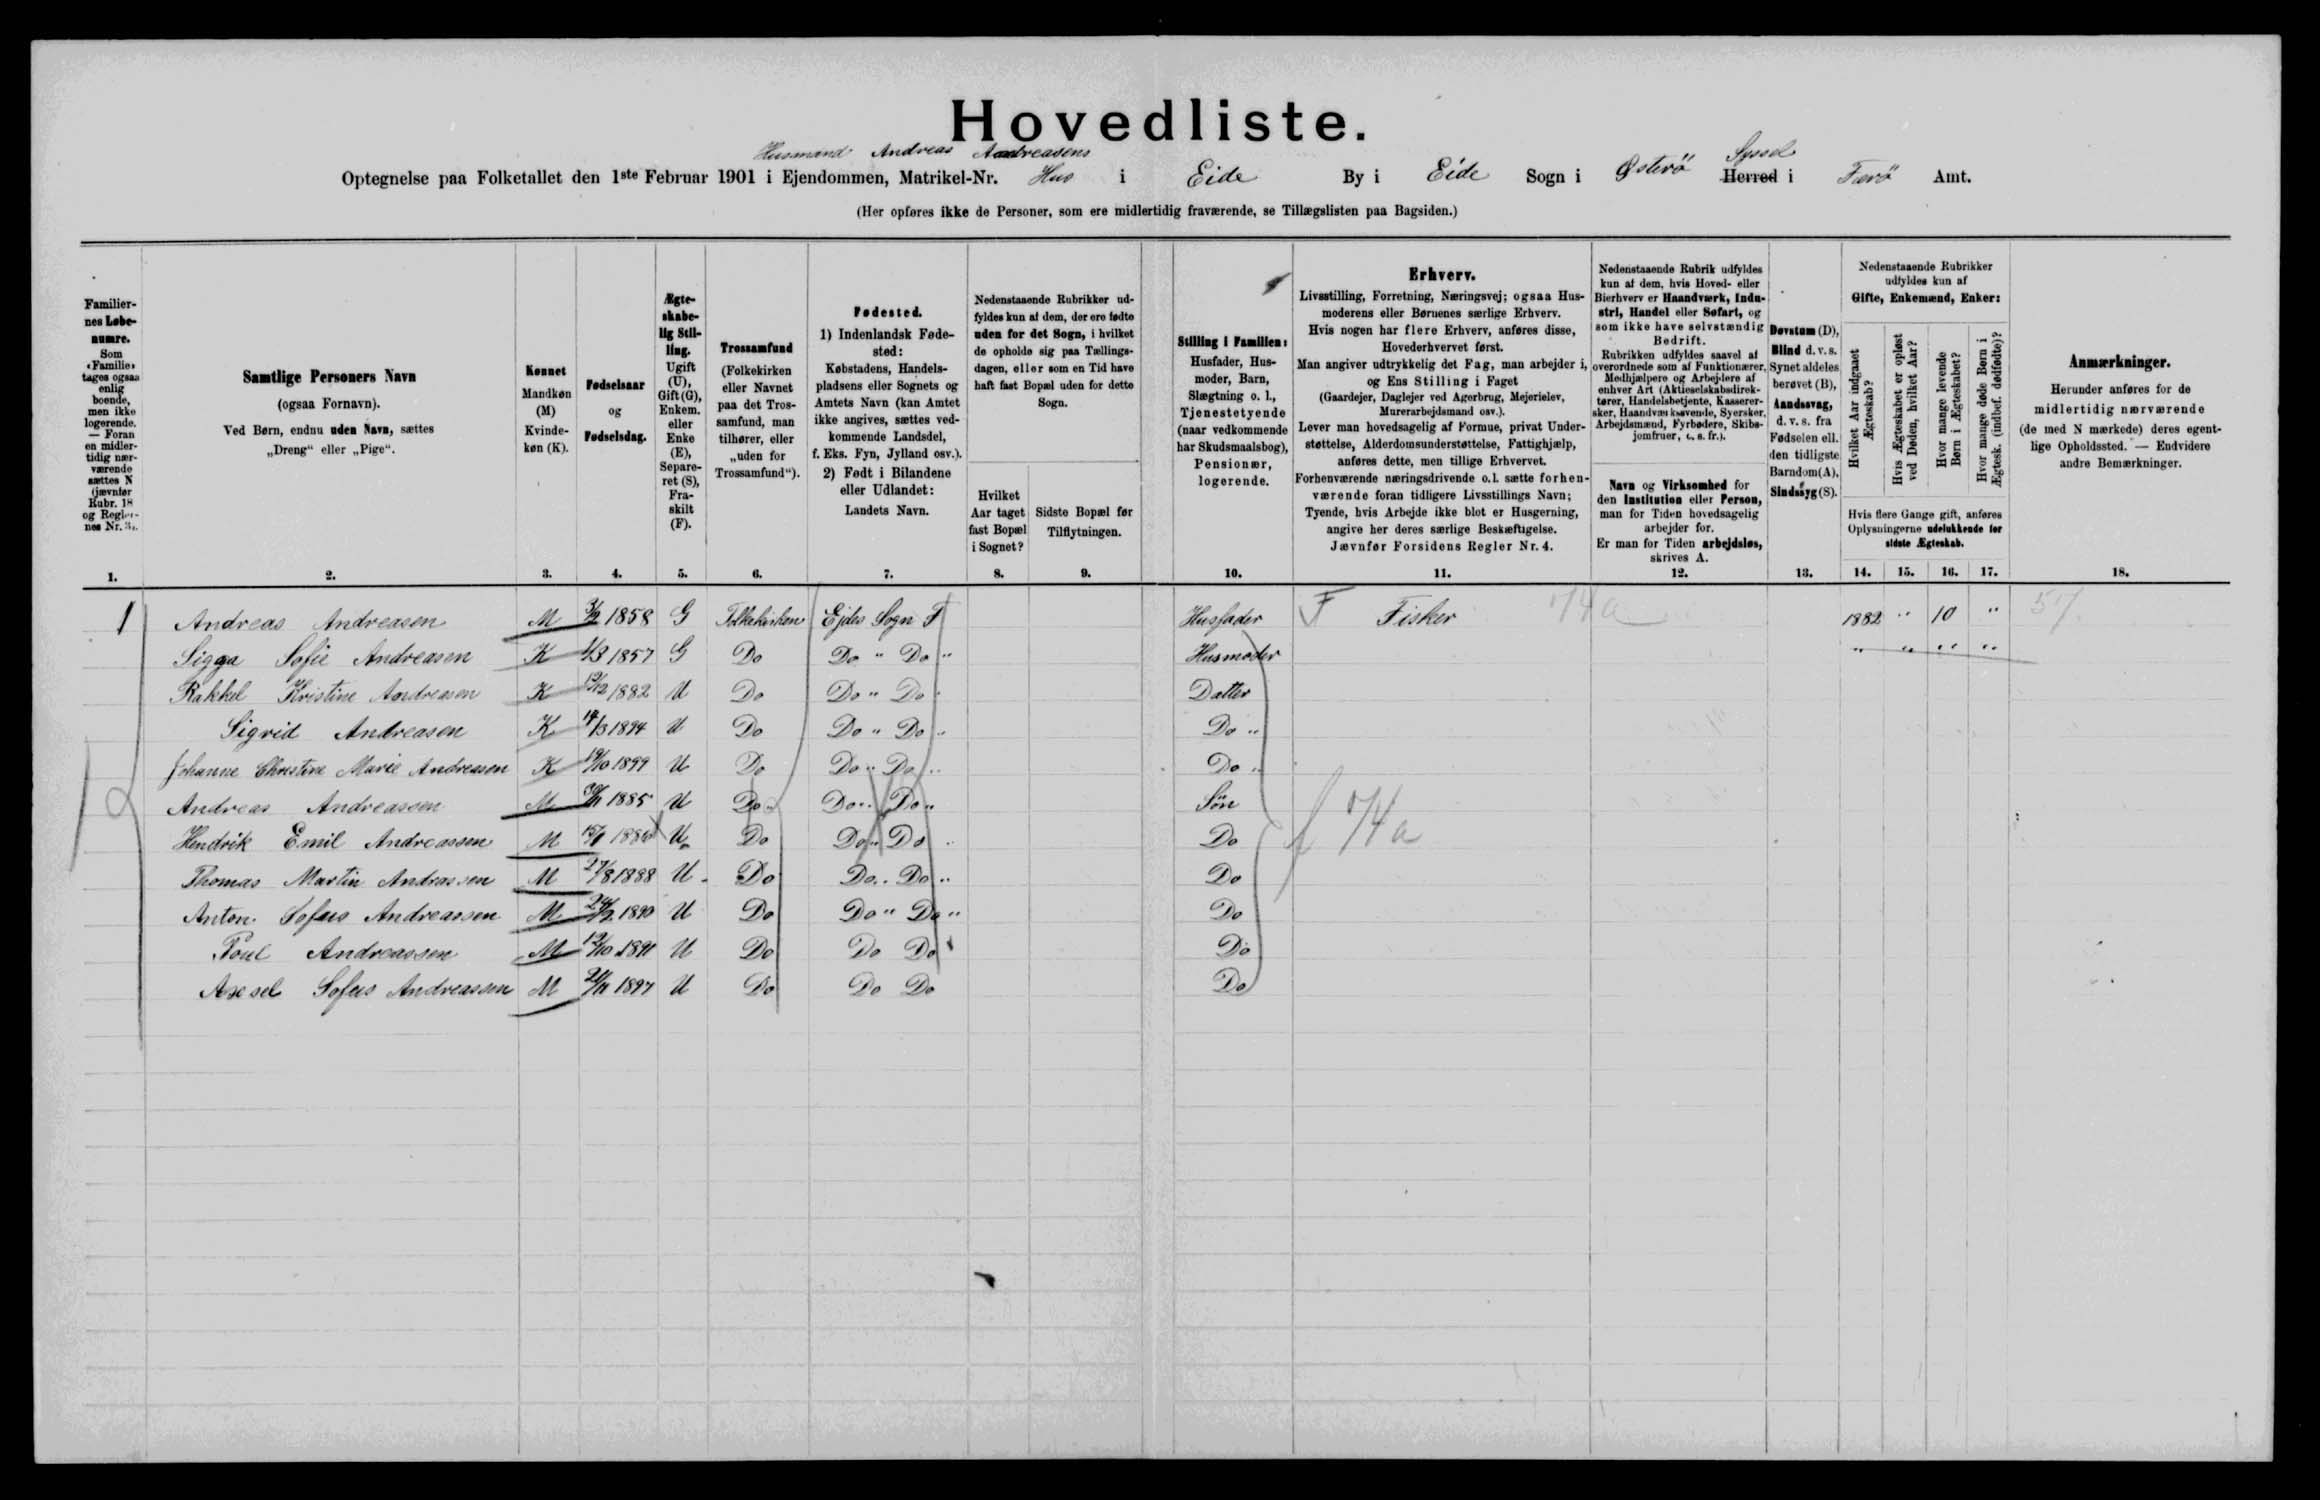 Hovedliste.
Husmand Andreas Andreasens
Optegnelse paa Folketallet den 1ste Februar 1901 i Ejendommen, Matrikel-Nr. Hus i Eide By i Eide Sogn i Østerö Syssel Herred i Færö Amt.
(Her opføres ikke de Personer, som ere midlertidig fraværende, se Tillægslisten paa Bagsiden.)
Familier-
nes Løbe-
numre.
Som
«Familie»
tages ogsaa
enlig
boende,
men ikke
logerende.
— Foran
en midler-
tidig nær-
værende
sættes N
(jævnfør
Rubr. 18
og Regler-
nes Nr. 3).
1.
Samtlige Personers Navn
(ogsaa Fornavn).
Ved Børn, endnu uden Navn, sættes
„Dreng“ eller „Pige“.
2.
Kønnet
Mandkøn
(M)
Kvinde-
køn (K).
3.
Fødselsaar
og
Fødselsdag.
4.
Ægte-
skabe-
lig Stil-
ling.
Ugift
(U),
Gift (G),
Enkem.
eller
Enke
(E),
Separe-
ret (S),
Fra-
skilt
(F).
5.
Trossamfund
(Folkekirken
eller Navnet
paa det Tros-
samfund, man
tilhører, eller
„uden for
Trossamfund“).
6.
Fødested.
1) Indenlandsk Føde-
sted:
Købstadens, Handels-
pladsens eller Sognets og
Amtets Navn (kan Amtet
ikke angives, sættes ved-
kommende Landsdel,
f. Eks. Fyn, Jylland osv.).
2) Født i Bilandene
eller Udlandet:
Landets Navn.
7.
Nedenstaaende Rubrikker ud-
fyldes kun af dem, der ere fødte
uden for det Sogn, i hvilket
de opholde sig paa Tællings-
dagen, eller som en Tid have
haft fast Bopæl uden for dette
Sogn.
Hvilket
Aar taget
fast Bopæl
i Sognet?
8.
Sidste Bopæl før
Tilflytningen.
9.
Stilling i Familien:
Husfader, Hus-
moder, Barn,
Slægtning o. l.,
Tjenestetyende
(naar vedkommende
har Skudsmaalsbog),
Pensionær,
logerende.
10.
Erhverv.
Livsstilling, Forretning, Næringsvej; ogsaa Hus-
moderens eller Børnenes særlige Erhverv.
Hvis nogen har flere Erhverv, anføres disse,
Hovederhvervet først.
Man angiver udtrykkelig det Fag, man arbejder i,
og Ens Stilling i Faget
(Gaardejer, Daglejer ved Agerbrug, Mejerielev,
Murerarbejdsmand osv.).
Lever man hovedsagelig af Formue, privat Under-
støttelse, Alderdomsunderstøttelse, Fattighjælp,
anføres dette, men tillige Erhvervet.
Forhenværende næringsdrivende o.l. sætte forhen-
værende foran tidligere Livsstillings Navn;
Tyende, hvis Arbejde ikke blot er Husgerning,
angive her deres særlige Beskæftigelse.
Jævnfør Forsidens Regler Nr. 4.
11.
Nedenstaaende Rubrik udfyldes
kun af dem, hvis Hoved- eller
Bierhverv er Haandværk, Indu-
stri, Handel eller Søfart, og
som ikke have selvstændig
Bedrift.
Rubrikken udfyldes saavel af
overordnede som af Funktionærer,
Medhjælpere og Arbejdere af
enhver Art (Aktieselskabsdirek-
tører, Handelsbetjente, Kasserer-
sker, Haandværkssvende, Syersker,
Arbejdsmænd, Fyrbødere, Skibs-
jomfruer, o. s. fr.).
Navn og Virksomhed for
den Institution eller Person,
man for Tiden hovedsagelig
arbejder for.
Er man for Tiden arbejdsløs,
skrives A.
12.
Døvstum (D),
Blind d. v. s.
Synet aldeles
berøvet (B),
Aandssvag,
d. v. s. fra
Fødselen ell.
den tidligste
Barndom (A),
Sindssyg (S).
13.
Nedenstaaende Rubrikker
udfyldes kun af
Gifte, Enkemænd, Enker:
Hvilket Aar indgaaet
Ægteskab?
Hvis Ægteskabet er opløst
ved Døden, hvilket Aar?
Hvor mange levende
Børn i Ægteskabet?
Hvor mange døde Børn i
Ægtesk. (indbef. dødfødte)?
Hvis flere Gange gift, anføres
Oplysningerne udelukkende for
sidste Ægteskab.
14. 15. 16. 17.
Anmærkninger.
Herunder anføres for de
midlertidig nærværende
(de med N mærkede) deres egent-
lige Opholdssted. — Endvidere
andre Bemærkninger.
18.
1 Andreas Andreasen M 3/2 1858 G Folkekirken Ejdes Sogn F Husfader F Fisker 74a 1882 " 10 " 57
Sigga Sofie Andreasen K 1/3 1857 G Do Do " Do " Husmoder " " " "
Rakkel Kristine Andreasen K 12/12 1882 U Do Do " Do " Datter
Sigrid Andreasen K 14/3 1894 U Do Do " Do " Do "
Johanne Christine Marie Andreasen K 19/10 1899 U Do Do " Do " Do "
Andreas Andreassen M 30/11 1885 U Do " Do " Do " Sön
Hendrik Emil Andreassen M 1886 U Do Do " Do " Do f 74a
Thomas Martin Andrassen M 27/8 1888 U Do Do " Do " Do
Anton Sofus Andreassen M 24/2 1890 U Do Do " Do " Do
Poul Andreassen M 19/10 1891 U Do Do Do " Do
Axesel Sofus Andreassen M 21/11 1897 U Do Do Do Do